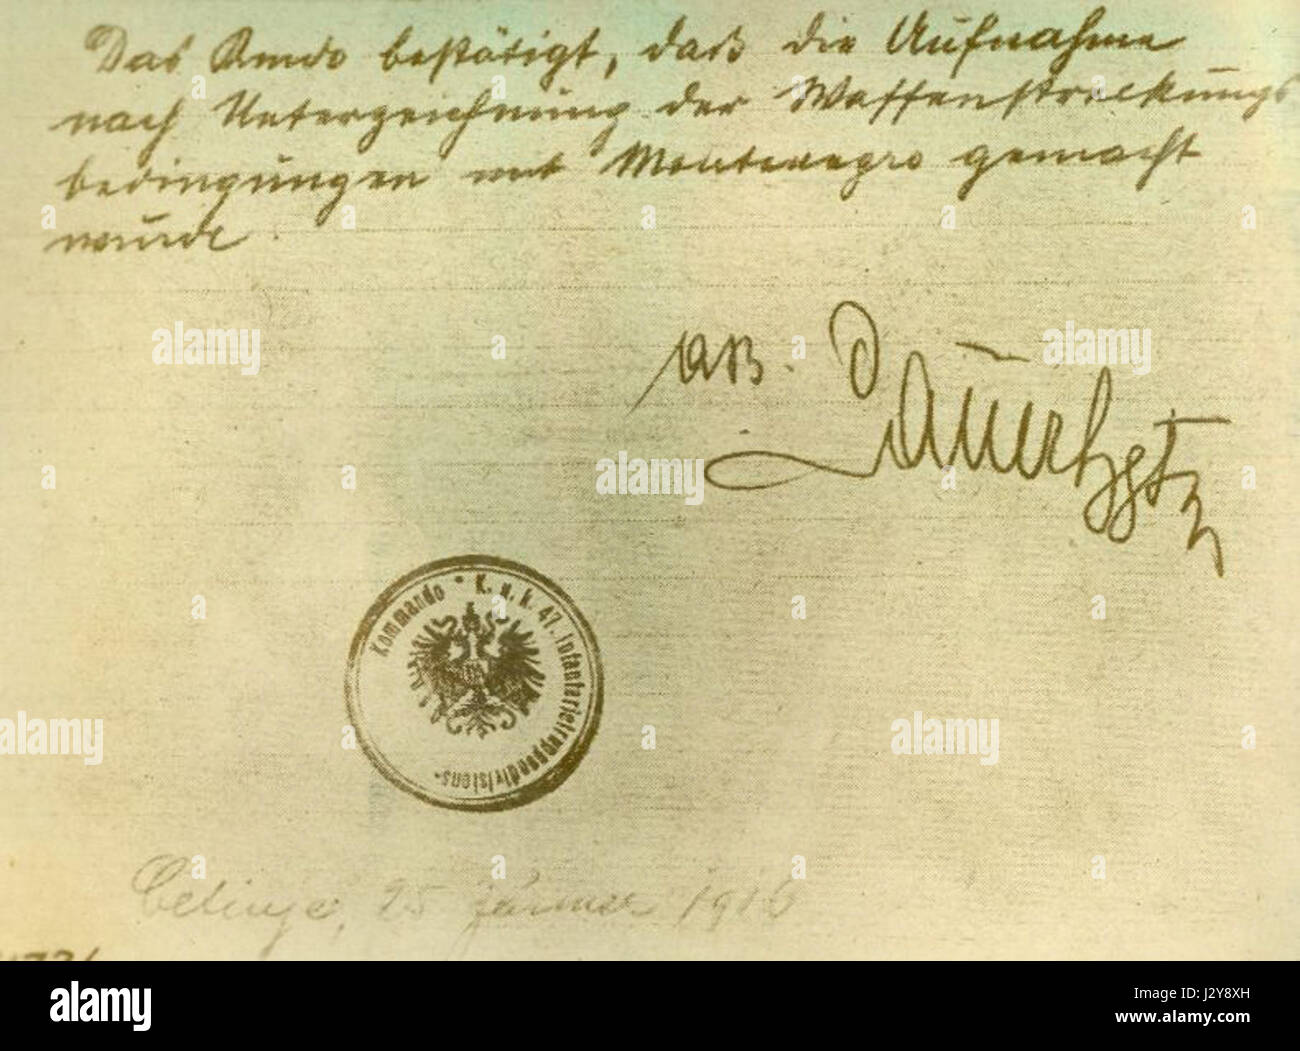 Das Kmdo bestätigt, daß die Aufnahme
nach Unterzeichnung der Waffenstreckungs
bedingungen mit Montenegro gemacht
wurde
Kommando K. u. k. 47. Infanterietruppendivisions-
Cetinje, 25 Jänner 1916
alamy
Image ID: J2Y8XH
www.alamy.com